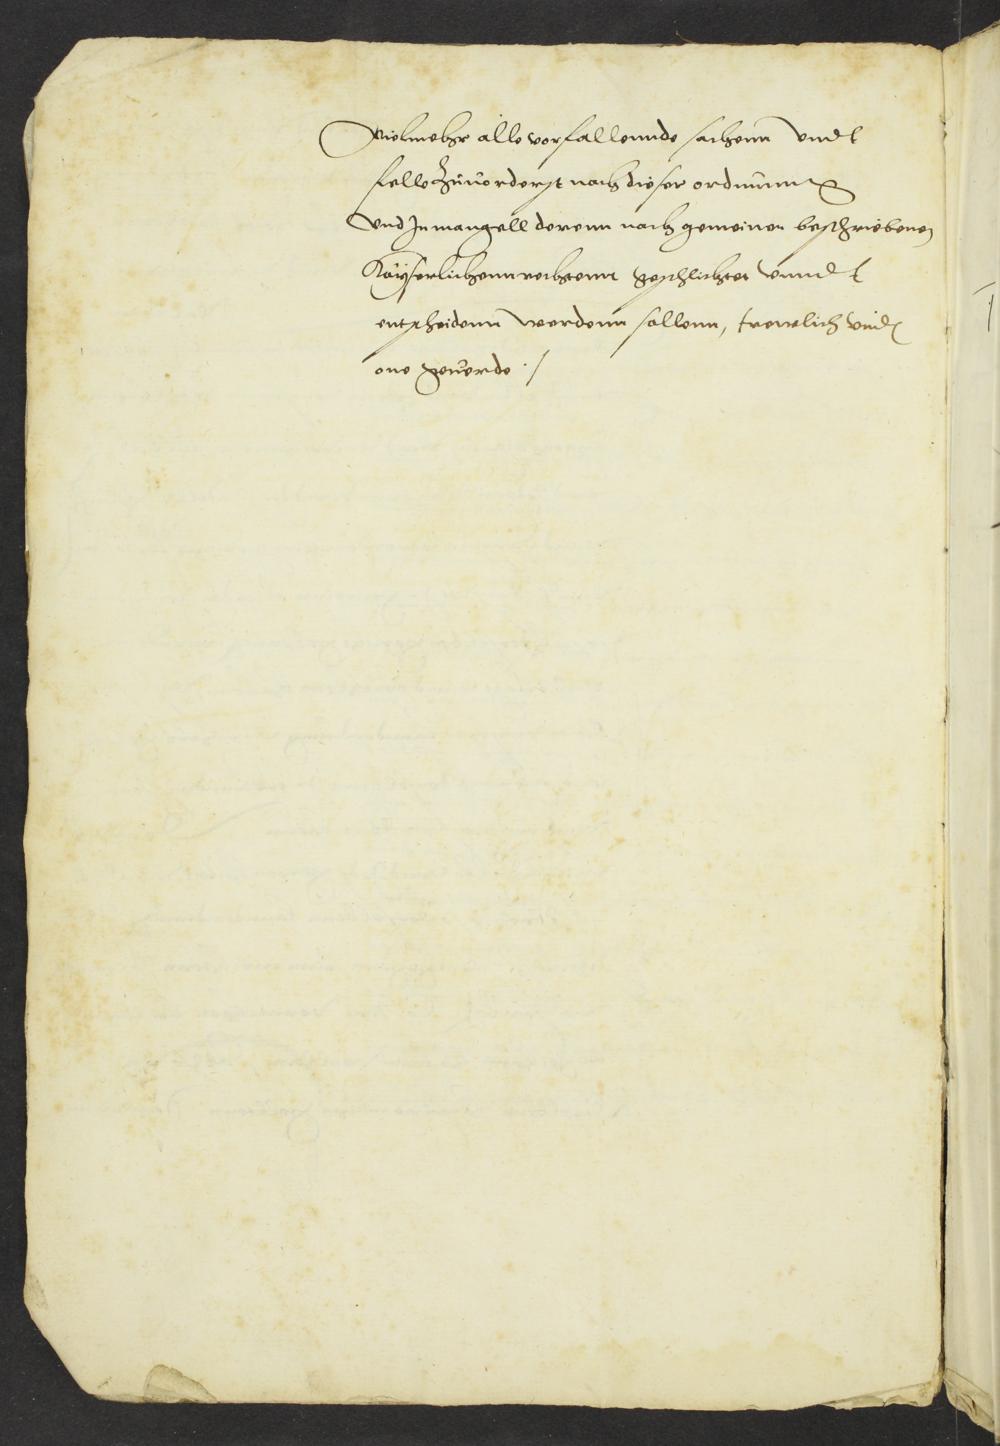 Vielmehr alle vorfallennde sachenn vnndt
felle Zuuorderst nach dieser ordnung
vnd In mangell derenn nach gemeinen beschriebenen
Kayserlichenn rechtenn geschlichtet vnndt
entscheidenn werdenn sollenn, trewlich vnd
one geuerde ./